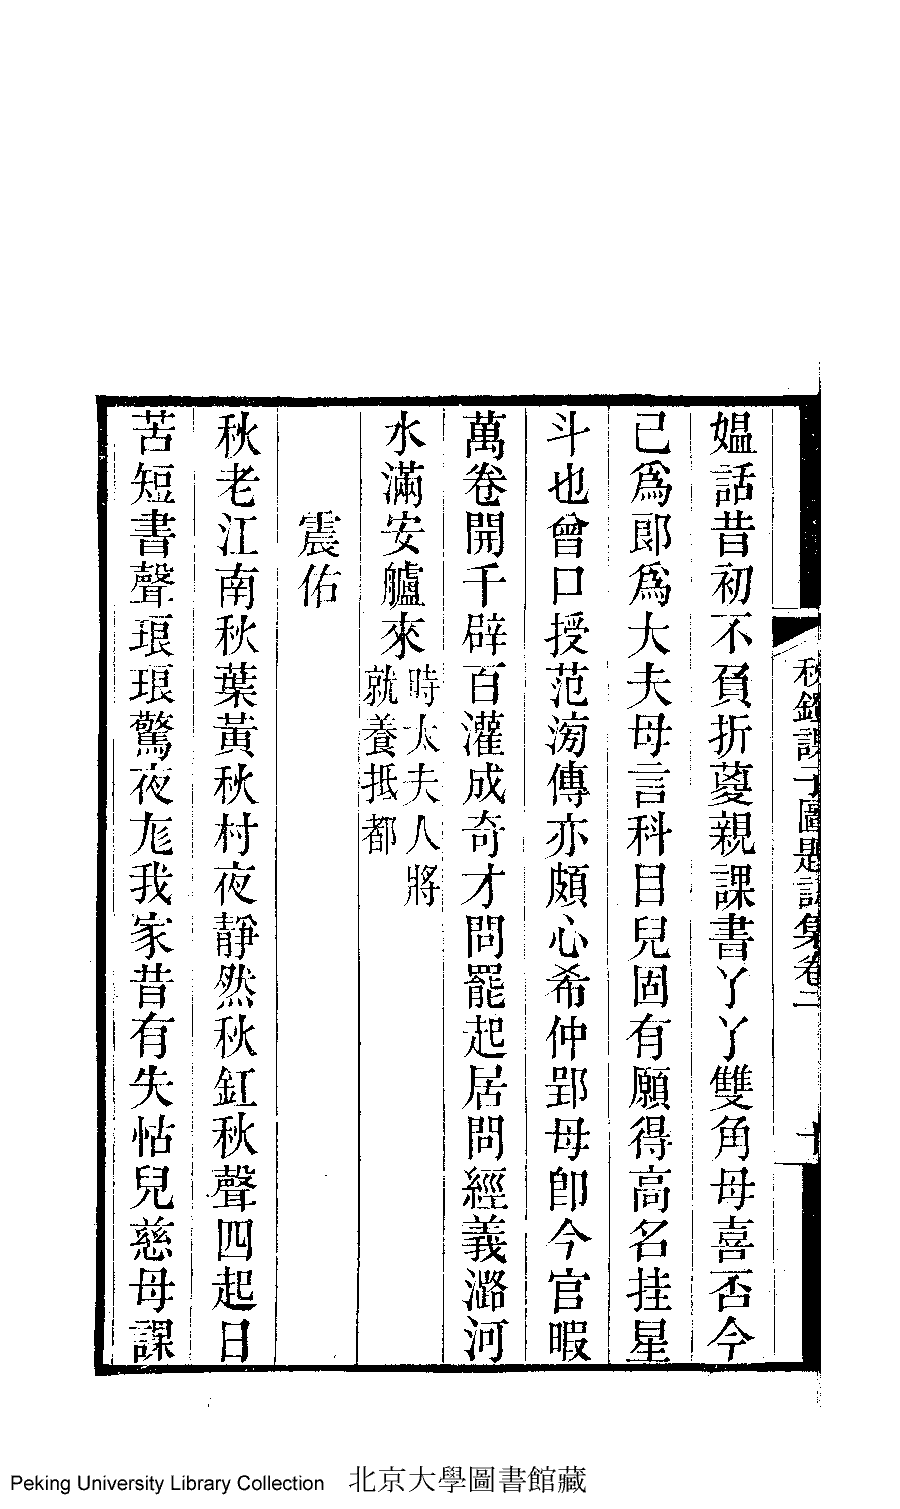 秋鐙課子圖題詞集卷二
十
媼話昔初不負折葼親課書丫丫雙角母喜否今
已爲郎爲大夫母言科目兒固有願得高名挂星
斗也曾口授范滂傳亦頗心希仲郢母卽今官暇
萬卷開千辟百灌成奇才問罷起居問經義潞河
水滿安艫來時太夫人將
就養抵都
震佑
秋老江南秋葉黃秋村夜靜然秋釭秋聲四起日
苦短書聲琅琅驚夜尨我家昔有失怙兒慈母課
Peking University Library Collection 北京大學圖書館藏